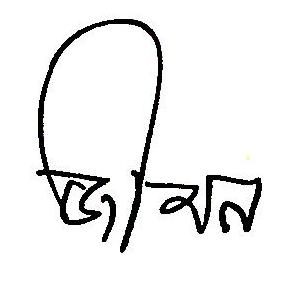 জীবন